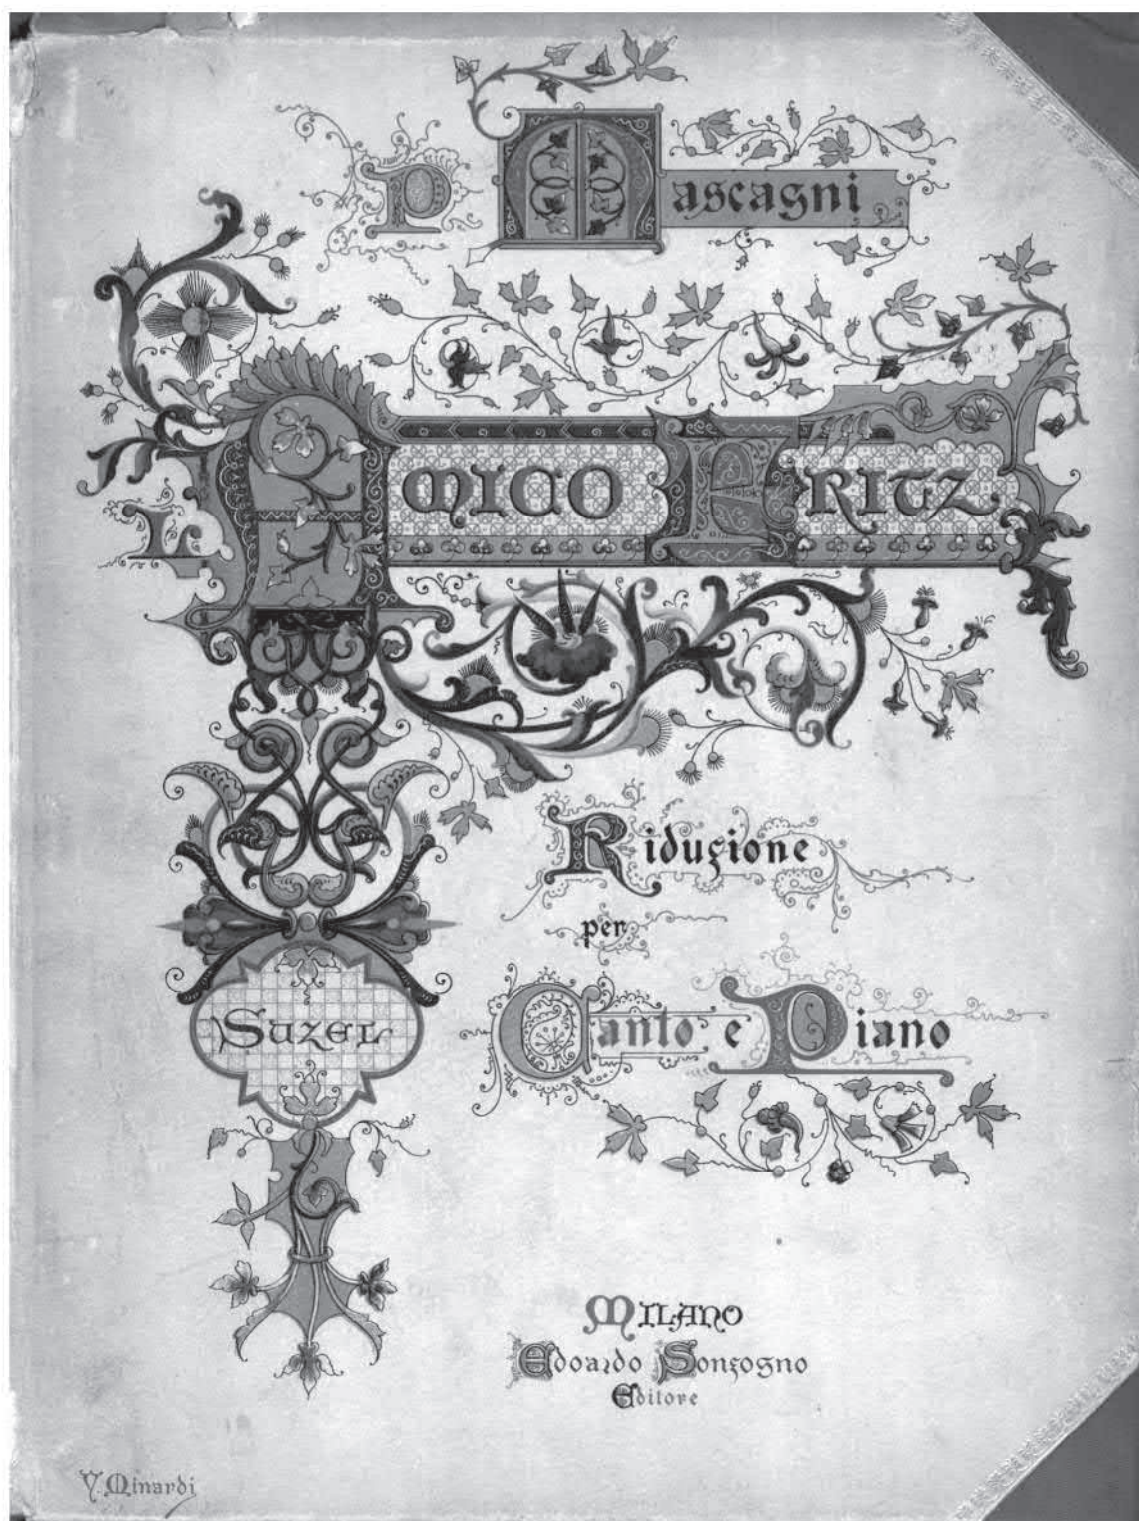 P Mascagni
L' AMICO FRITZ
Riduzione
per
Canto e Piano
SUZEL
MILANO
Edoardo Sonzogno
Editore
V. Minardi